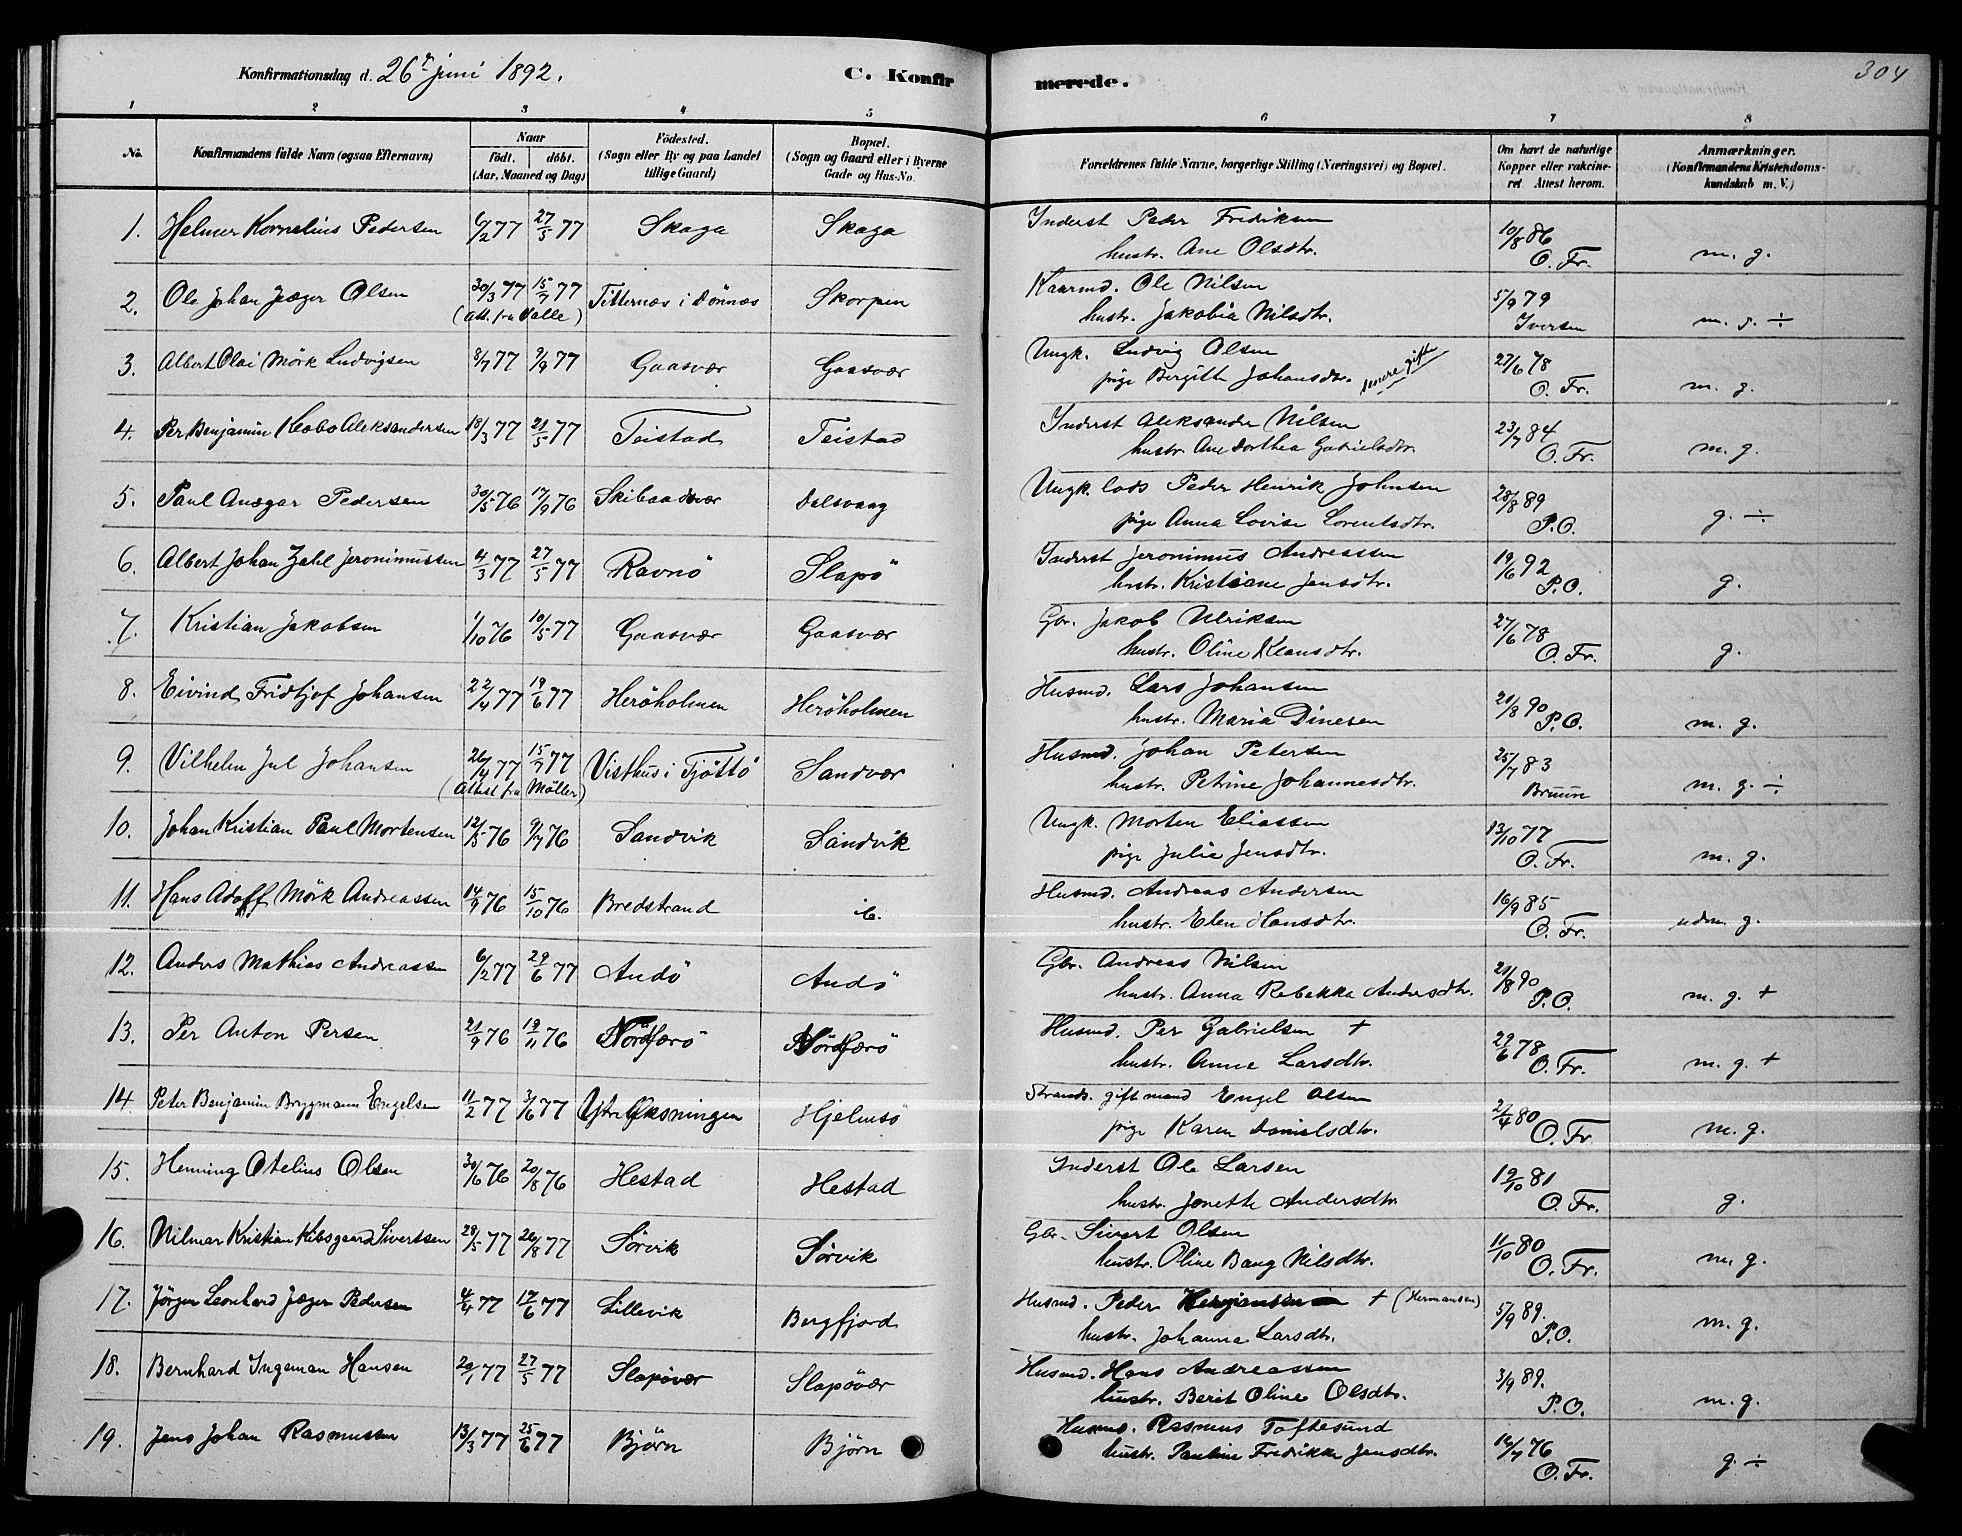 Konfirmationsdag d. 26de juni 1892. C. Konfirmerede. 304
1 2 3 4 5 6 7 8
No. Konfirmandens fulde Navn (ogsaa Efternavn) Naar født. døbt. (Aar, Maaned og Dag) Fødested. (Sogn eller By og paa Landet tillige Gaard) Bopæl. (Sogn og Gaard eller i Byerne Gade og Hus-No. Forældrenes fulde Navne, borgerlige Stilling (Næringsvei) og Bopæl. Om havt de naturlige Kopper eller vakcineret. Attest herom. Anmærkninger. (Konfirmandens Kristendomskundskab m. V.)
1. Helmer Kornelius Pedersen 6/2 77 27/5 77 Skaga Skaga Inderst Peder Fredriksen 10/8 86
hustr. Ane Olsdtr. O. Fr. m. g.
2. Ole Johan Jæger Olsen 30/3 77 15/7 77 Titternæs i Dönnæs Skorpen Kaarmd. Ole Nilsen 5/9 79
(Att. fra Valle) hustr. Jakobia Nilsdtr. Iversen m. g. ÷
3. Albert Olai Mörk Ludvigsen 8/7 77 9/9 77 Gaasvær Gaasvær Ungk. Ludvig Olsen 27/6 78
pige Bergitte Johansdtr. senere gifte O. Fr. m. g.
4. Per Benjamin Kobo Aleksandersen 18/3 77 21/5 77 Teistad Teistad Inderst Aleksander Nilsen 23/7 84
hustr. Ane Dorthea Gabrielsdtr. O. Fr. m. g.
5. Paul Ansgar Pedersen 30/5 76 17/9 76 Skibaadsvær Dalsvaag Ungk. lods Peder Henrik Johnsen 28/8 89
pige Anna Lovise Lorentsdtr. P. O. g. ÷
6. Albert Johan Zahl Jeronimussen 4/3 77 27/5 77 Ravnö Slapö Inderst Jeronimus Andreassen 19/6 92
hustr. Kristiane Jensdtr. P. O. g.
7. Kristian Jakobsen 1/10 76 10/5 77 Gaasvær Gaasvær Gbr. Jakob Ulriksen 27/6 78
hustr. Oline Klausdtr. O. Fr. g.
8. Eivind Fridtjof Johansen 22/4 77 19/6 77 Heröholmen Heröholmen Husmd. Lars Johansen 21/8 90
hustr. Maria Dinesen P. O. m. g.
9. Vilhelm Jul Johansen 26/4 77 15/7 77 Visthus i Tjöttö Sandvær Husmd. Johan Petersen 25/7 83
(Attest fra Möller) hustr. Petrine Johannesdtr. Bruun m. g. ÷
10. Johan Kristian Paul Mortensen 12/5 76 9/7 76 Sandvik Sandvik Ungk. Morten Eliassen 13/10 77
pige Julie Jensdtr. O. Fr. m. g.
11. Hans Adolf Mörk Andreassen 14/9 76 15/10 76 Bredstrand ib. Husmd. Andreas Andersen 16/9 85
hustr. Elen Hansdtr. O. Fr. udm. g.
12. Anders Mathias Andreassen 6/2 77 29/6 77 Andö Andö Gbr. Andreas Nilsen 21/8 90
hustr. Anna Rebekka Andersdtr. P. O. m. g. +
13. Per Anton Persen 21/9 76 19/11 76 Nordherö Nordherö Husmd. Per Gabrielsen + 29/6 78
hustr. Anne Larsdtr. O. Fr. m. g. +
14. Peter Benjamin Brygmann Engelsen 11/2 77 3/6 77 Ytre Öksningen Hjelmsö Strands. gift mand Engel Olsen 2/4 80
pige Karen Danielsdtr. O. Fr. m. g.
15. Henning Otelius Olsen 30/6 76 20/8 76 Hestad Hestad Inderst Ole Larsen 19/10 81
hustr. Jonette Andersdtr. O. Fr. g.
16. Nilmar Kristian Kibsgaard Sivertsen 28/5 77 26/8 77 Sörvik Sörvik Gbr. Sivert Olsen 11/10 80
hustr. Oline Bang Nilsdtr. O. Fr. m. g.
17. Jörgen Leonhard Jæger Pedersen 4/4 77 17/6 77 Lillevik Bergfjord Husmd. Peder + (Hermansen) 5/9 89.
hustr. Johanna Larsdtr. P. O. m. g.
18. Bernhard Ingeman Hansen 20/1 77 27/5 77 Slapövær Slapövær Husmd. Hans Andreassen 3/9 89.
hustr. Berit Oline Olsdtr. P. O. m. g.
19. Jens Johan Rasmussen 13/3 77 25/6 77 Björn Björn Husmd. Rasmus Toftesund 14/7 76
hustr. Pauline Fredrikke Jensdtr. O. Fr. g. ÷